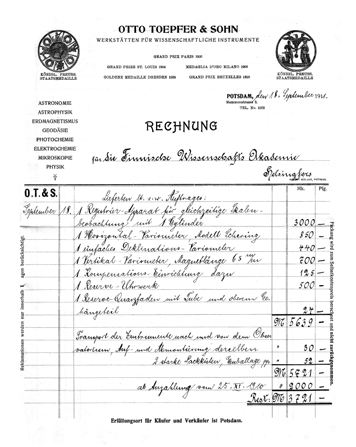 OTTO TOEPFER & SOHN
WERKSTÄTTEN FÜR WISSENSCHAFTLICHE INSTRUMENTE
GRAND PRIX PARIS 1900
GRAND PRIX ST. LOUIS 1904 MEDAGLIA D'ORO MILANO 1906
GOLDENE MEDAILLE DRESDEN 1909 GRAND PRIX BRUXELLES 1910
KÖNIGL. PREUSS.
STAATSMEDAILLE
KÖNIGL. PREUSS.
STAATSMEDAILLE
POTSDAM, den 18. September 1911.
TEL. No.
ASTRONOMIE
ASTROPHYSIK
ERDMAGNETISMUS
GEODÄSIE
PHOTOCHEMIE
ELEKTROCHEMIE
MIKROSKOPIE
PHYSIK
RECHNUNG
für Die Finnische Wissenschafts Akademie
Helsingfors
O. T. & S.
Mk. Pfg.
Lieferten Auftrages:
September 18. 1 Registrier-Apparat für gleichzeitige Skalen-
beobachtung mit 1 Cylinder 3000 —
1 Horizontal-Variometer, Modell 850 —
1 einfaches Deklinations-Variometer 440 —
1 Vertikal-Variometer Magnetlänge 65 m/m 700 —
1 Kompensations-Einrichtung dazu 125 —
1 Reserve-Uhrwerk 500 —
1 Reserve-Quarzfaden mit und oberem Ge-
hängeteil 24 —
M 5639 —
Transport der Instrumente nach und von dem Obser-
vatorium, Auf- und Abmontierung derselben " 30 —
2 starke Packkisten, Emballage pp. " 52 —
M 5721 —
ab Anzahlung vom 25. XI. 1910 " 2000 —
Rest: M 3721 —
Erfüllungsort für Käufer und Verkäufer ist Potsdam.